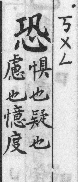 恐
ㄎㄨㄥ
懼也疑也
慮也憶度